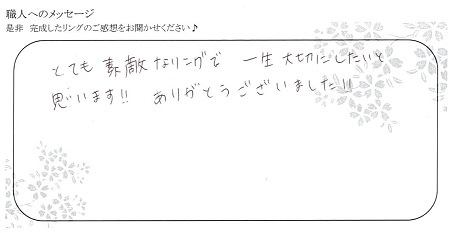 職人へのメッセージ
是非 完成したリングのご感想をお聞かせください♪
とても素敵なリングで 一生大切にしたいと
思います!! ありがとうございました!!